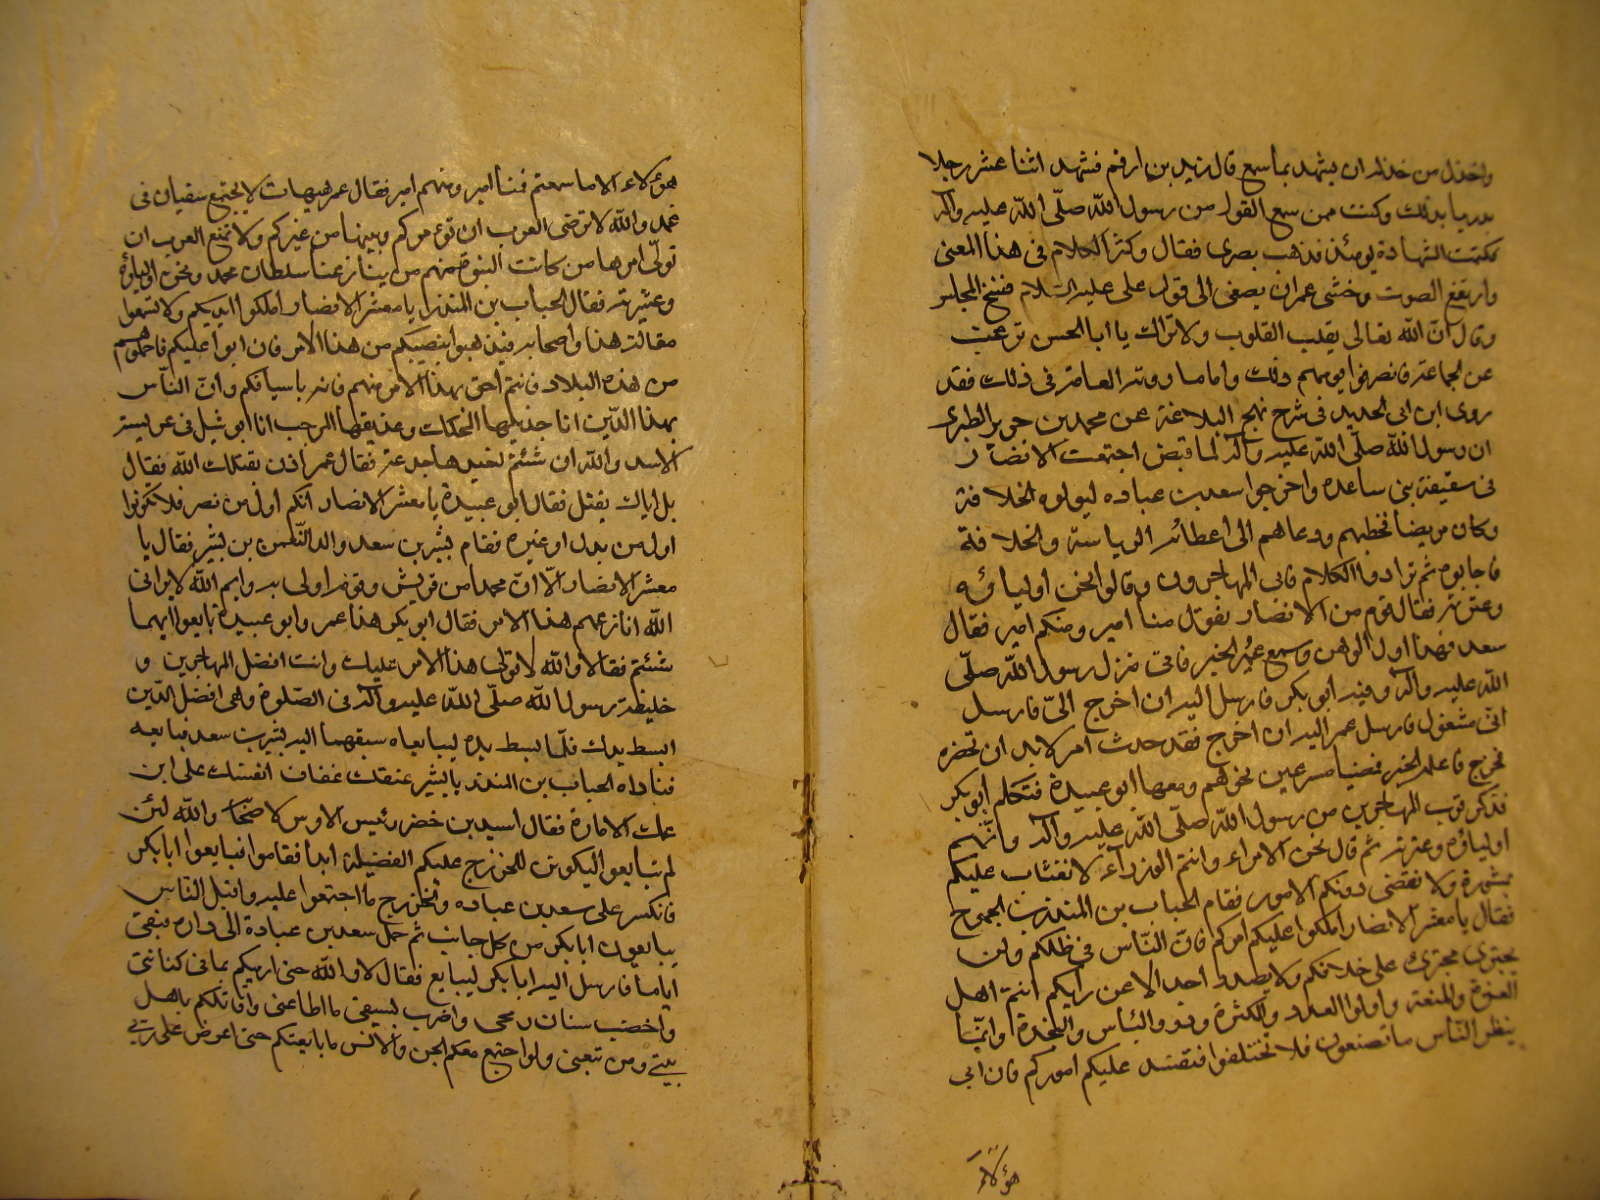 واخذل من خذله ان يشهد بما سمع قال زيد بن ارقم فشهد اثنا عشر رجلا
بدريا بذلك وكنت ممن سمع القول من رسول الله صلّى اللّه عليه وآله
فكتمت الشهادة يومئذ فذهب بصرى فقال وكثر الكلام فى هذا المعنى
وارتفع الصوت وخشى عمر ان يصغى الى قول على عليه السّلام ففسخ المجلس
وقال انّ اللّه تعالى يقلب القلوب ولا تزال يا ابا الحسن ترغب
عن الجماعة فانصرفوا يومهم ذلك واما ما روته العامة فى ذلك فقد
روى ابن ابى الحديد فى شرح نهج البلاغة عن محمد بن جرير الطبرى
ان رسول اللّه صلّى اللّه عليه وآله لما قبض اجتمعت الانصار
فى سقيفة بنى ساعده واخرجوا سعد بن عباده ليولوه الخلافة
وكان مريضا فخطبهم ودعاهم الى اعطائه الرياسة والخلافة
فاجابوه ثم ترادوا الكلام فان ابى المهاجرون وقالوا نحن اولياؤه
وعترته فقال قوم من الانصار نقول منا امير ومنكم امير فقال
سعد فهذا اول الوهن وسمع عمر الخبر فاتى منزل رسول اللّه صلّى
اللّه عليه وآله وفيه ابو بكر فارسل اليه ان اخرج الىّ فارسل
انّى مشغول فارسل عمر اليه ان اخرج فقد حدث امر لا بد ان تحضره
فخرج فاعلمه الخبر فمضيا مسرعين نحوهم ومعهما ابو عبيدة فتكلم ابو بكر
فذكر قرب المهاجرين من رسول اللّه صلّى اللّه عليه وآله وانّهم
اولياؤه وعترته ثم قال نحن الامراء وانتم الوزراء لا نفتات عليكم
بمشورة ولا نقضى دونكم الامور فقام الحباب بن المنذر بن الجموح
فقال يا معشر الانصار املكوا عليكم امركم فانّ النّاس فى ظلكم ولن
يجترى مجترى على خلافكم ولا يصدر احد الا عن رأيكم انتم اهل
العزة والمنعة واولوا العدد والكثرة وذوو البأس والنجدة وانّما
ينظر النّاس ما تصنعون فلا تختلفوا فتفسد عليكم اموركم فان ابى
هؤلاء
هؤلاء الا ما سمعتم فمنا امير ومنهم امير فقال عمر هيهات لا يجتمع سيفان فى
غمد واللّه لا ترضى العرب ان تؤمركم ونبيها من غيركم ولا تمنع العرب ان
تولّى امرها من كانت النبوة منهم من ينازعنا سلطان محمد ونحن اولياؤه
وعشيرته فقال الحباب بن المنذر يا معشر الانصار املكوا ايديكم ولا تسمعوا
مقالة هذا واصحابه فيذهبوا بنصيبكم من هذا الامر فان ابوا عليكم فاجلوهم
من هذه البلاد فانتم احق بهذا الامر منهم فانه باسيافكم دان النّاس
بهذا الدّين انا جذيلها المحكك وعذيقها المرجب انا ابو شبل فى عريسة
الاسد واللّه ان شئتم لنعيدها جذعة فقال عمر اذن يقتلك اللّه فقال
بل اياك يقتل فقال ابو عبيدة يا معشر الانصار انكم اول من نصر فلا تكونوا
اول من بدل او غيره فقام بشير بن سعد والد النّعمن بن بشير فقال يا
معشر الانصار الّا انّ محمدا من قريش وقومه اولى به وايم اللّه لا يرانى
اللّه انازعهم هذا الامر فقال ابو بكر هذا عمر وابو عبيدة بايعوا ايهما
شئتم فقالا واللّه لا نتولى هذا الامر عليك وانت افضل المهاجرين و
خليفة رسول اللّه صلّى اللّه عليه وآله فى الصّلوة وهى افضل الدّين
ابسط يدك فلمّا بسط يده ليبايعاه سبقهما اليه بشير بن سعد فبايعه
فناداه الحباب بن المنذر يا بشير عققك عفاف انفست على ابن
عمك الامارة فقال اسيد بن خضر رئيس الاوس لاصحابه واللّه لئن
لم تبايعوا ليكونن للخزرج عليكم الفضيلة ابدا فقاموا فبايعوا ابا بكر
فانكسر على سعد بن عباده والخزرج ما اجتمعوا عليه واقبل النّاس
يبايعون ابا بكر من كل جانب ثم حمل سعد بن عبادة الى داره فبقى
اياما فارسل اليه ابا بكر ليبايع فقال لا واللّه حتى ارميكم بما فى كنانتى
واخضب سنان رمحى واضرب بسيفى ما اطاعنى واقاتلكم باهل
بيتى ومن تبعنى ولو اجتمع معكم الجن والانس ما بايعتكم حتى اعرض على ربى